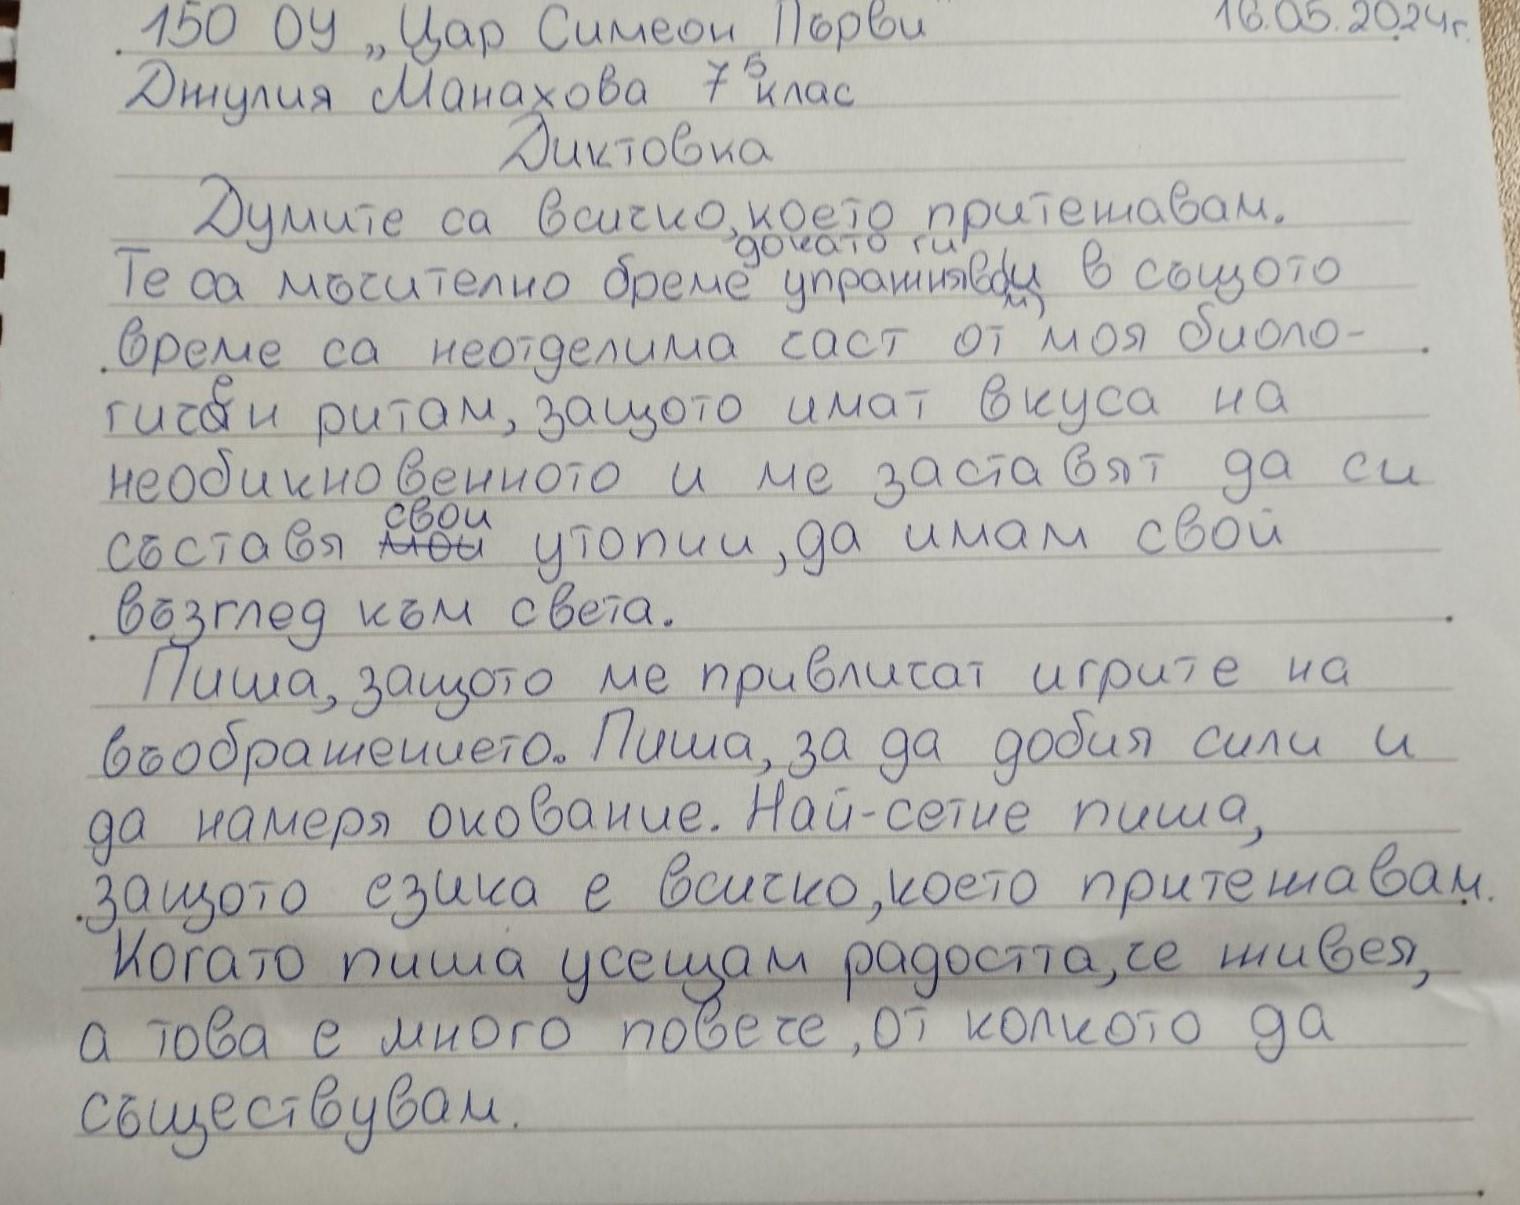 150 ОУ „Цар Симеон Първи“ 16.05.2024г.
Джулия Манахова 7 б клас
Диктовка
Думите са всичко, което притежавам.
докато ги
Те са мъчително бреме упражнявам, в същото
време са неотделима част от моя биоло-
гичеви ритам, защото имат вкуса на
необикновенното и ме заставят да си
свои
съставя мои утопии, да имам свой
възглед към света.
Пиша, защото ме привличат игрите на
въображението. Пиша, за да добия сили и
да намеря окование. Най-сетне пиша,
защото езика е всичко, което притежавам.
Когато пиша усещам радостта, че живея,
а това е много повече, от колкото да
съществувам.